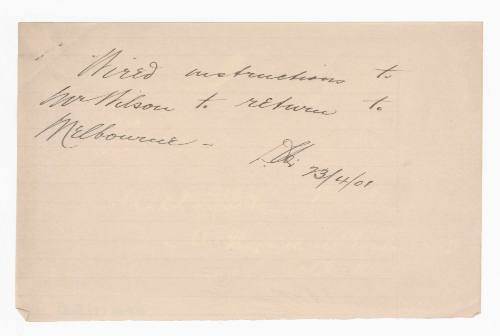 Wired instructions to
Mr Wilson to return to
Melbourne -
23/4/01